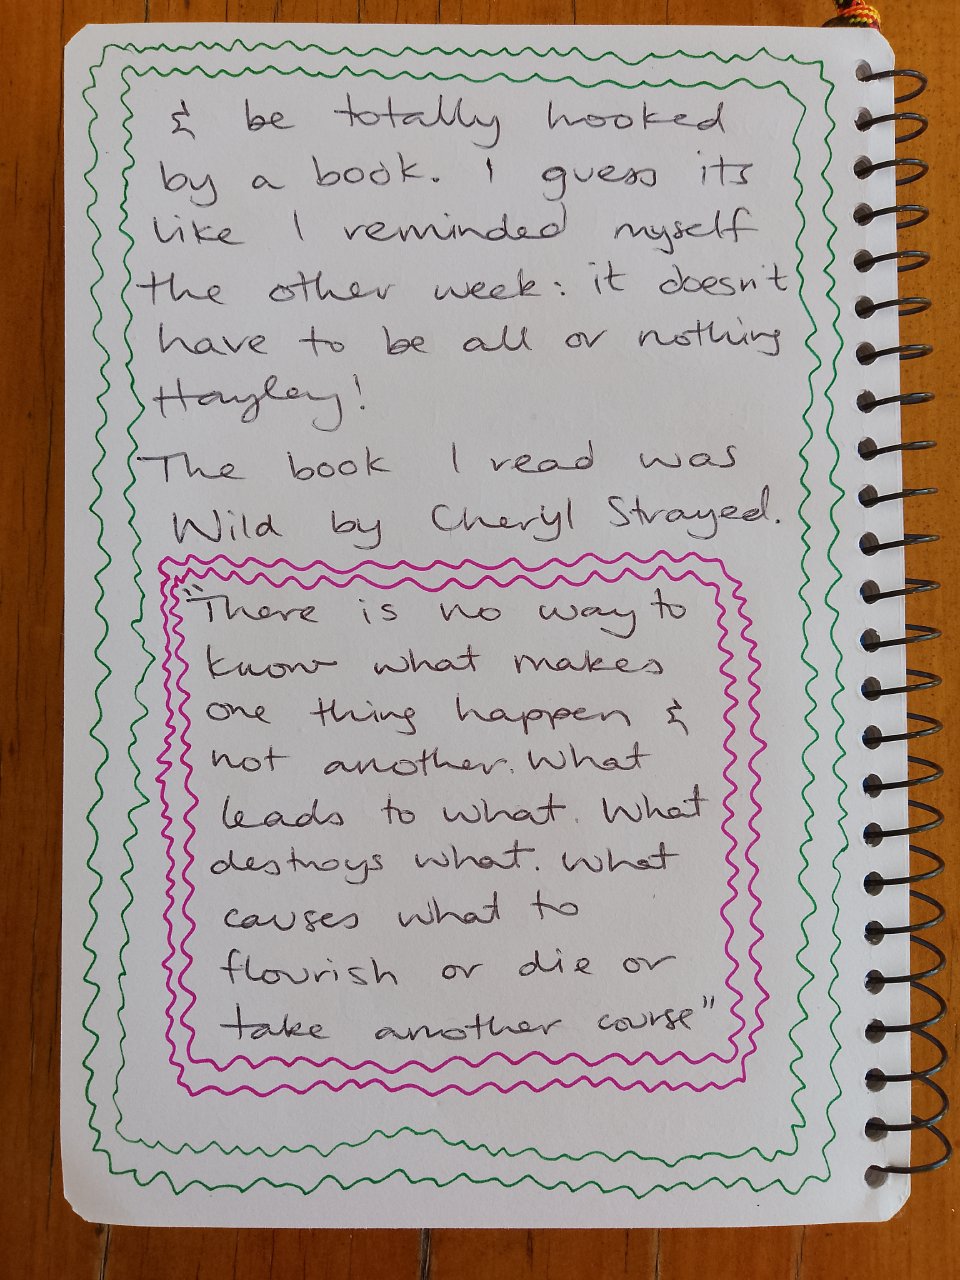 & be totally hooked
by a book. I guess its
like I reminded myself
the other week: it doesn't
have to be all or nothing
Hayley!
The book I read was
Wild by Cheryl Strayed.
"There is no way to
know what makes
one thing happen &
not another. What
leads to what. What
destroys what. What
causes what to
flourish or die or
take another course"